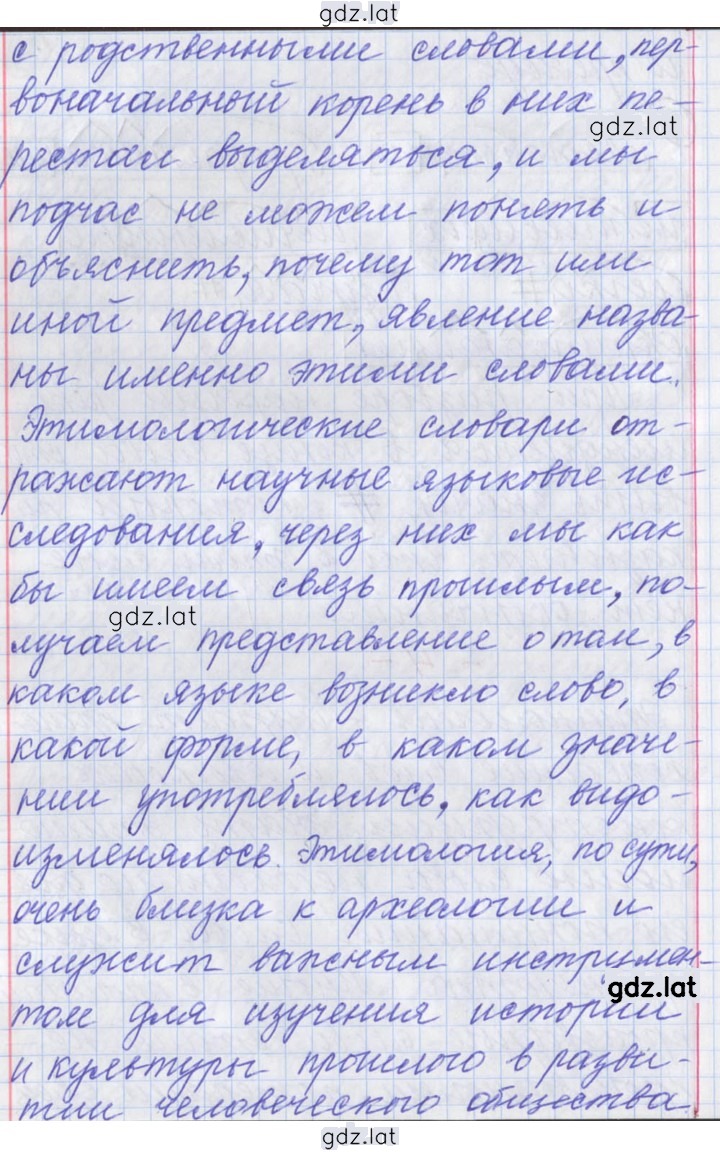 gdz.lat
с родственными словами, пер-
воначальный корень в них пе-
gdz.lat
рестал выделяться, и мы
подчас не можем понять и
объяснить, почему тот или
иной предмет, явление назва-
ны именно этими словами.
Этимологические словари от-
ражают научные языковые ис-
следования, через них мы как
бы имеем связь прошлым, по-
gdz.lat
лучаем представление о том, в
каком языке возникло слово, в
какой форме, в каком значе-
нии употреблялось, как видо-
изменялось. Этимология, по сути,
очень близка к археологии и
служит важным инструмен-
gdz.lat
том для изучения истории
и культуры прошлого в разви-
тии человеческого общества.
gdz.lat